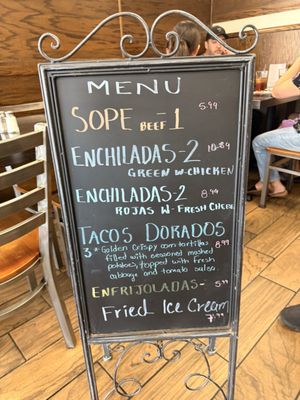 MENU
SOPE BEEF-1 5.99
ENCHILADAS-2 10.89
GREEN W-CHICKEN
ENCHILADAS-2 8.99
ROJAS W-FRESH CHEESE
TACOS DORADOS
3 * Golden crispy corn tortillas 8.99
filled with seasoned mashed
potatoes, topped with fresh
cabbage and tomato salsa.
ENFRIJOLADAS- 5.99
Fried Ice Cream